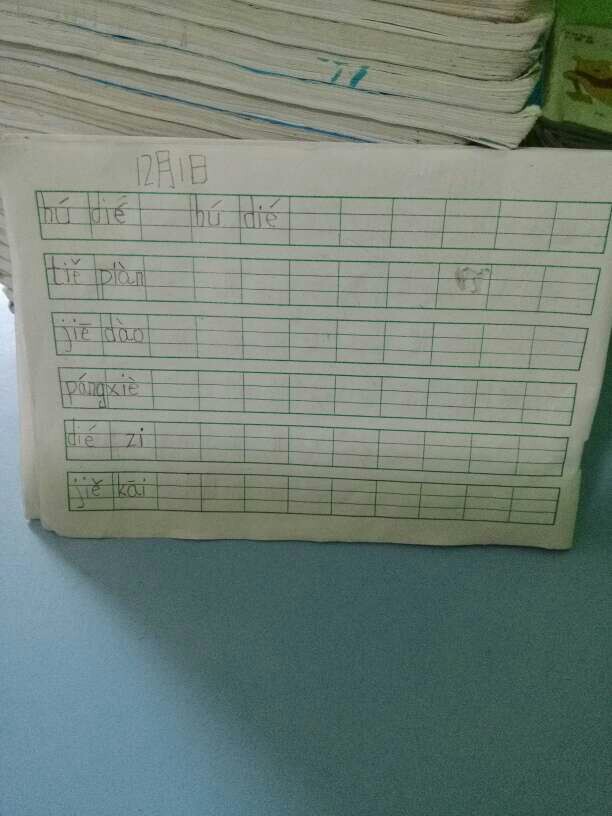 12月1日
hú dié hú dié
tiě piàn
jiē dào
pángxiè
dié zi
jiě kāi